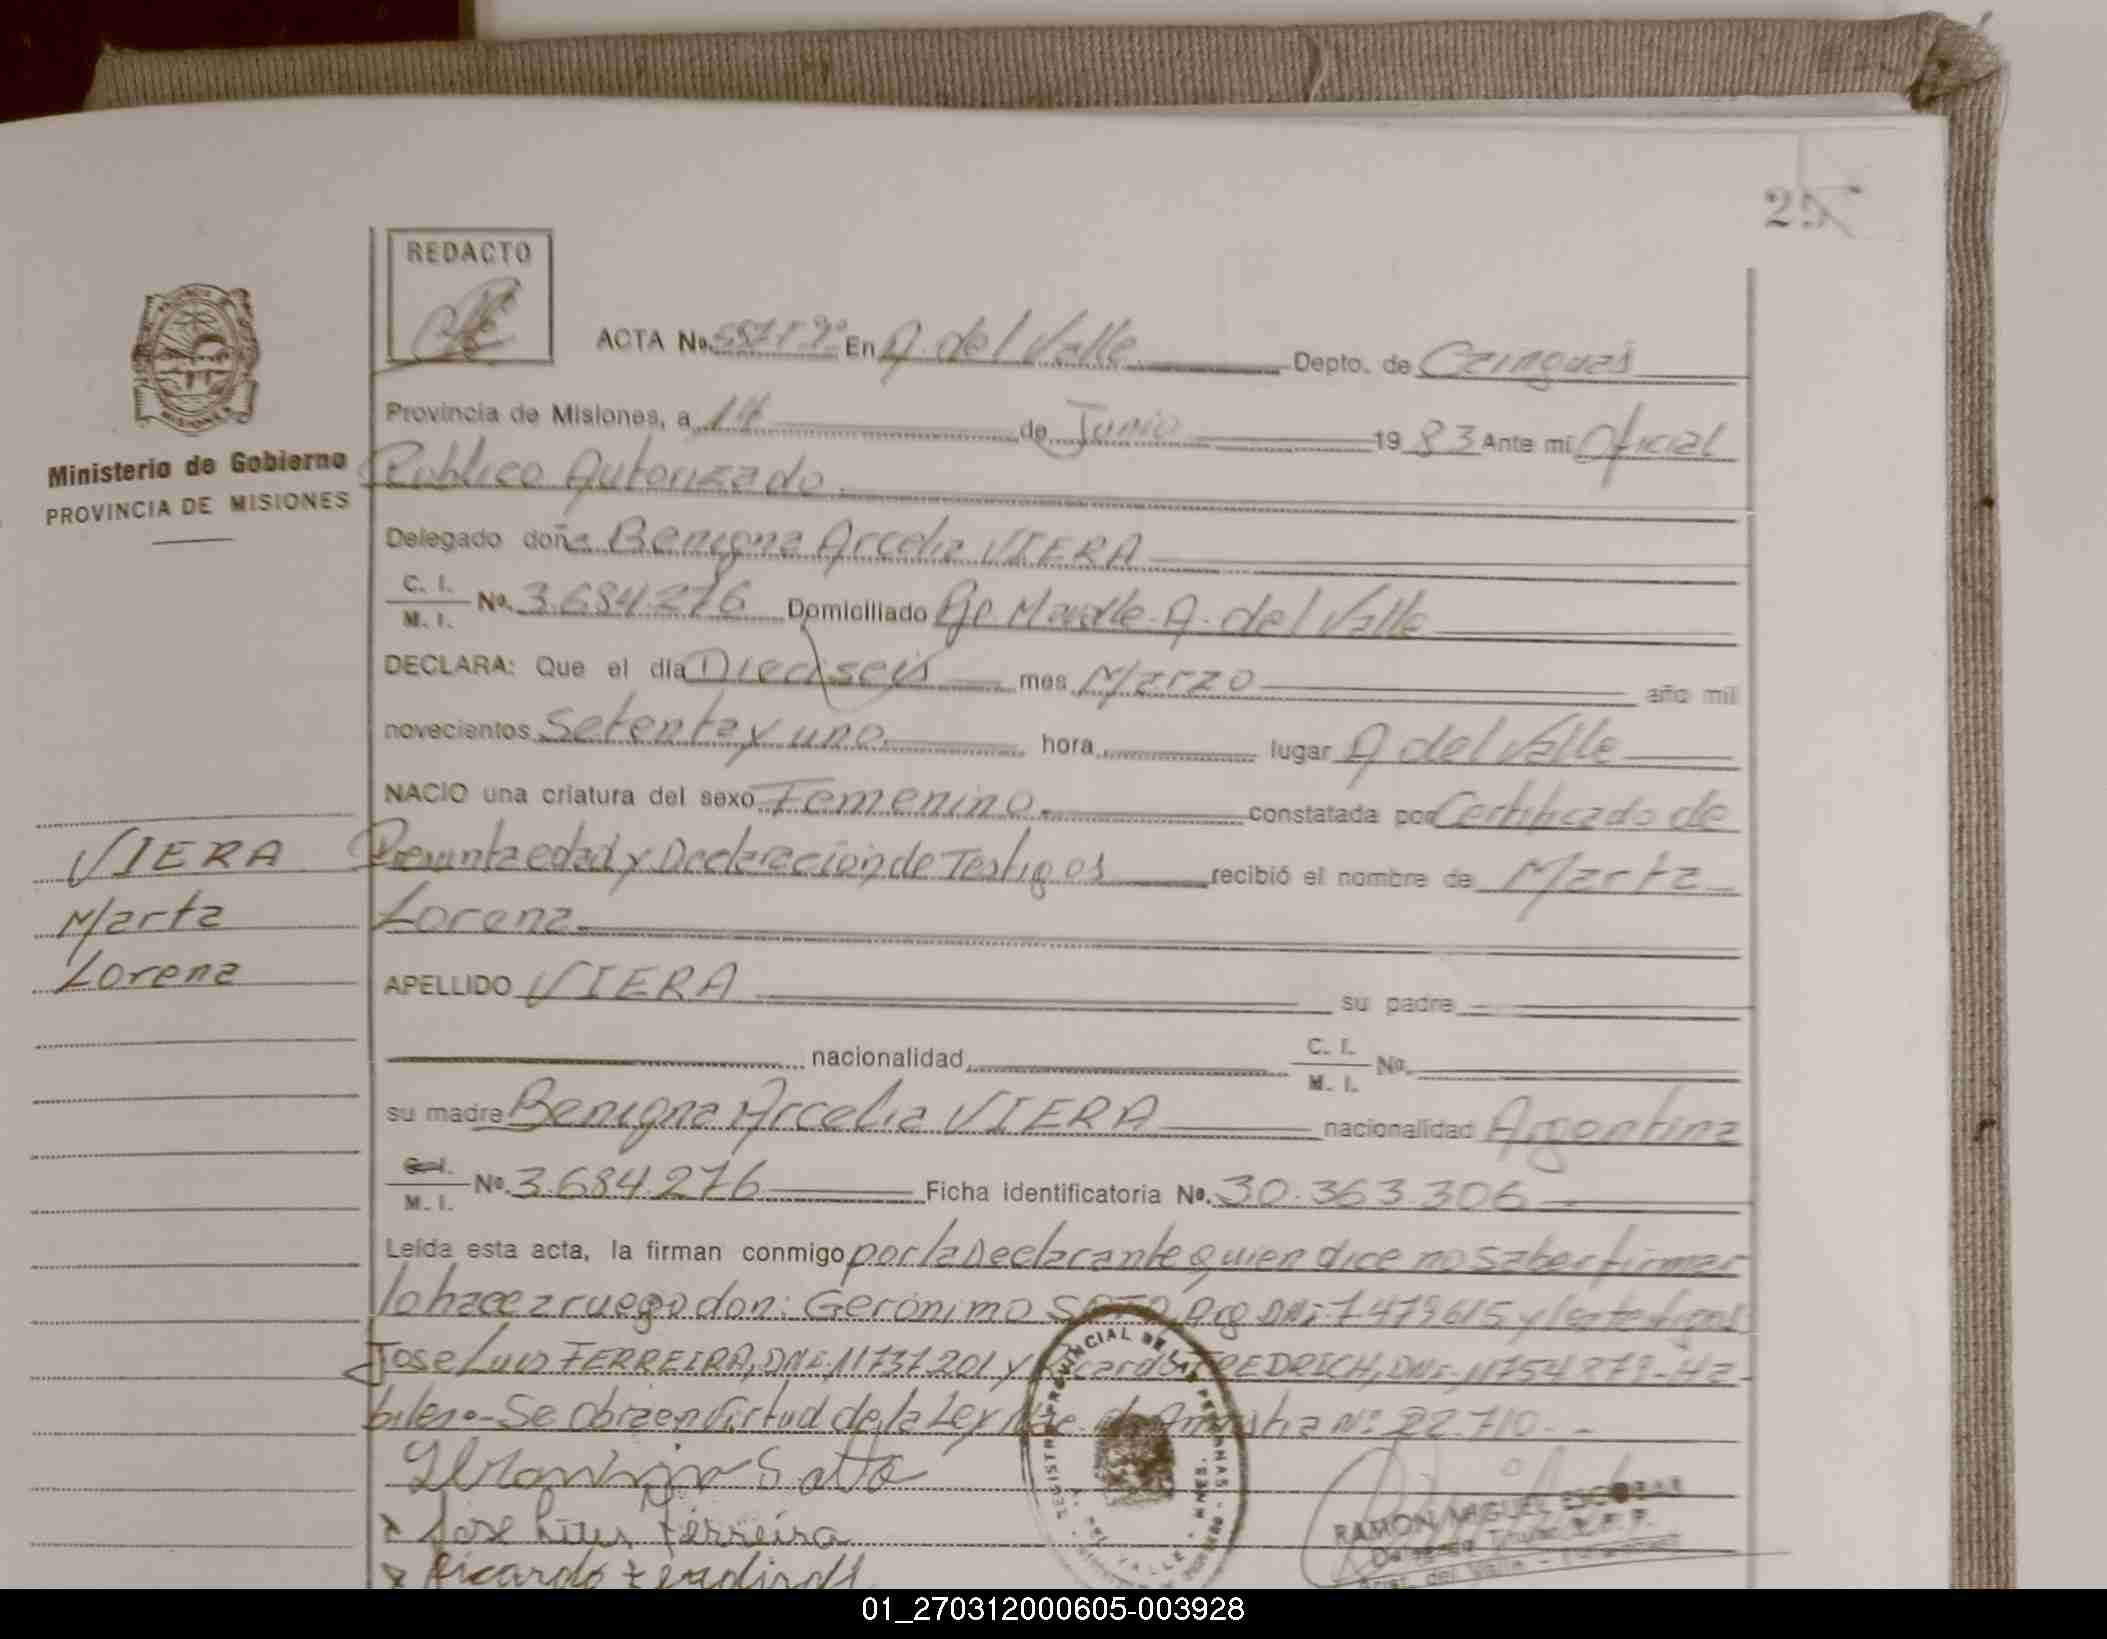 25
REDACTO
ACTA No. En A del Valle Depto. de Cainguás
Provincia de Misiones, a 14 de Junio 1983 Ante mi Oficial
Público Autorizado
Delegado doña Benigna Arcelia VIERA
C. I. / M. I. No. 3.684.276 Domiciliado Pje Mavalle. A. del Valle
Ministerio de Gobierno
PROVINCIA DE MISIONES
DECLARA: Que el día Dieciseis mes Marzo año mil
novecientos Setenta y uno hora lugar A del Valle
NACIO una criatura del sexo Femenino constatada por Certificado de
Presunta edad y Declaración de Testigos recibió el nombre de Marta
Lorena
VIERA
Marta
Lorena
APELLIDO VIERA su padre
nacionalidad C. I. / M. I. No.
su madre Benigna Arcelia VIERA nacionalidad Argentina
C. I. / M. I. No. 3.684.276 Ficha identificatoria No. 30.363.306
Leída esta acta, la firman conmigo por la Declarante quien dice no saber firmar
lo hace a ruego don: Gerónimo SOTO, Arg DNi: 7.479615 y los testigos
Jose Luis FERREIRA, DNi. 11737.201 y Ricardo FREDRICH, DNi. 11754279-Há-
biles.- Se obra en virtud de la Ley Nac. de Amnistia Nº 22.710.-
Jose Luis Ferreira
Ricardo
REGISTRO PROVINCIAL DE LAS PERSONAS
RAMON MIGUEL ESCOBAR
Arist. del Valle
01_270312000605-003928